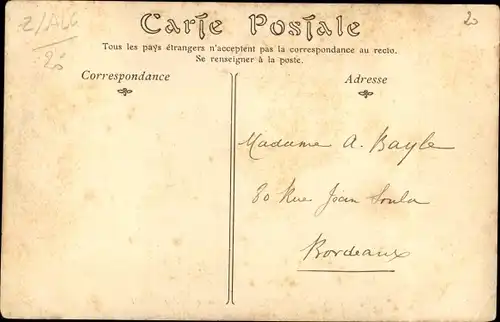 Carte Postale
Tous les pays étrangers n'acceptent pas la correspondance au recto.
Se renseigner à la poste.
Correspondance
Adresse
Madame A. Bayle
80 Rue Jean Soula
Bordeaux
20
20